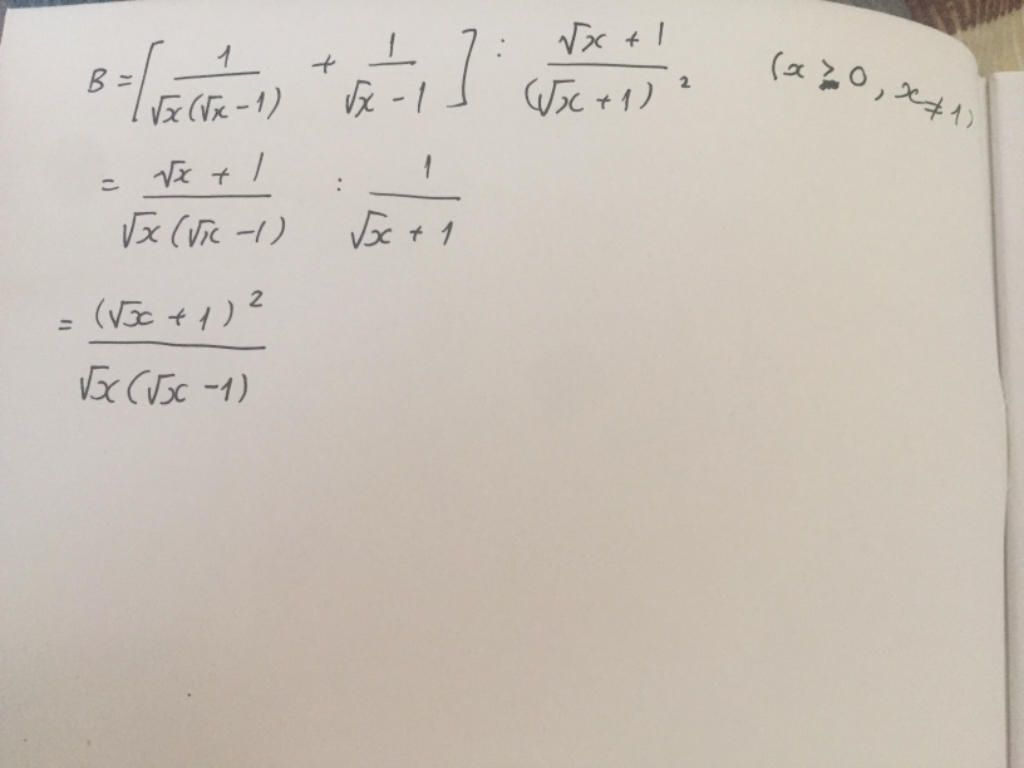 B = [ 1/(√x(√x - 1)) + 1/(√x - 1) ] : (√x + 1)/(√x + 1)² (x ≥ 0, x ≠ 1)
= (√x + 1)/(√x(√x - 1)) : 1/(√x + 1)
= (√x + 1)²/(√x(√x - 1))